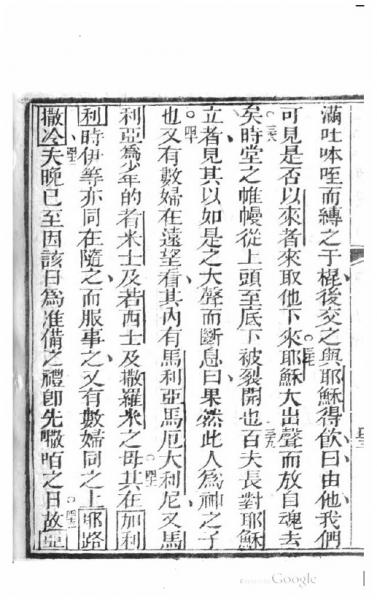 滿吐㕲咥而縛之于棍後交之與耶穌得飲曰由他我們
可見是否以來者來取他下來○三七耶穌大出聲而放自魂去
矣○三八時堂之帷幔從上頭至底下被裂開也○三九百夫長對耶穌
立者見其以如是之大聲而斷息曰果然此人為神之子
也○四十又有數婦在遠望看其內有馬利亞馬厄大利尼又馬
利亞為少年的者米士及若西士及撒羅米之母○四一其在加利
利時伊等亦同在隨之而服事之又有數婦同之上耶路
撒冷○四二夫晚已至因該日為准備之禮即先嗽咟之日○四三故亞
Google